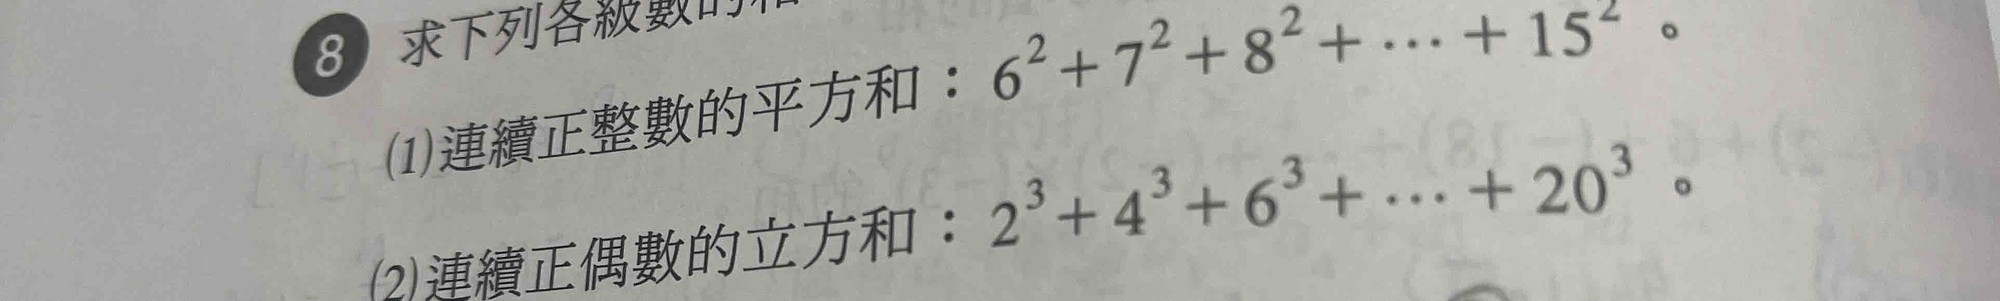 8 求下列各級數的和
(1)連續正整數的平方和：6²+7²+8²+⋯+15²。
(2)連續正偶數的立方和：2³+4³+6³+⋯+20³。